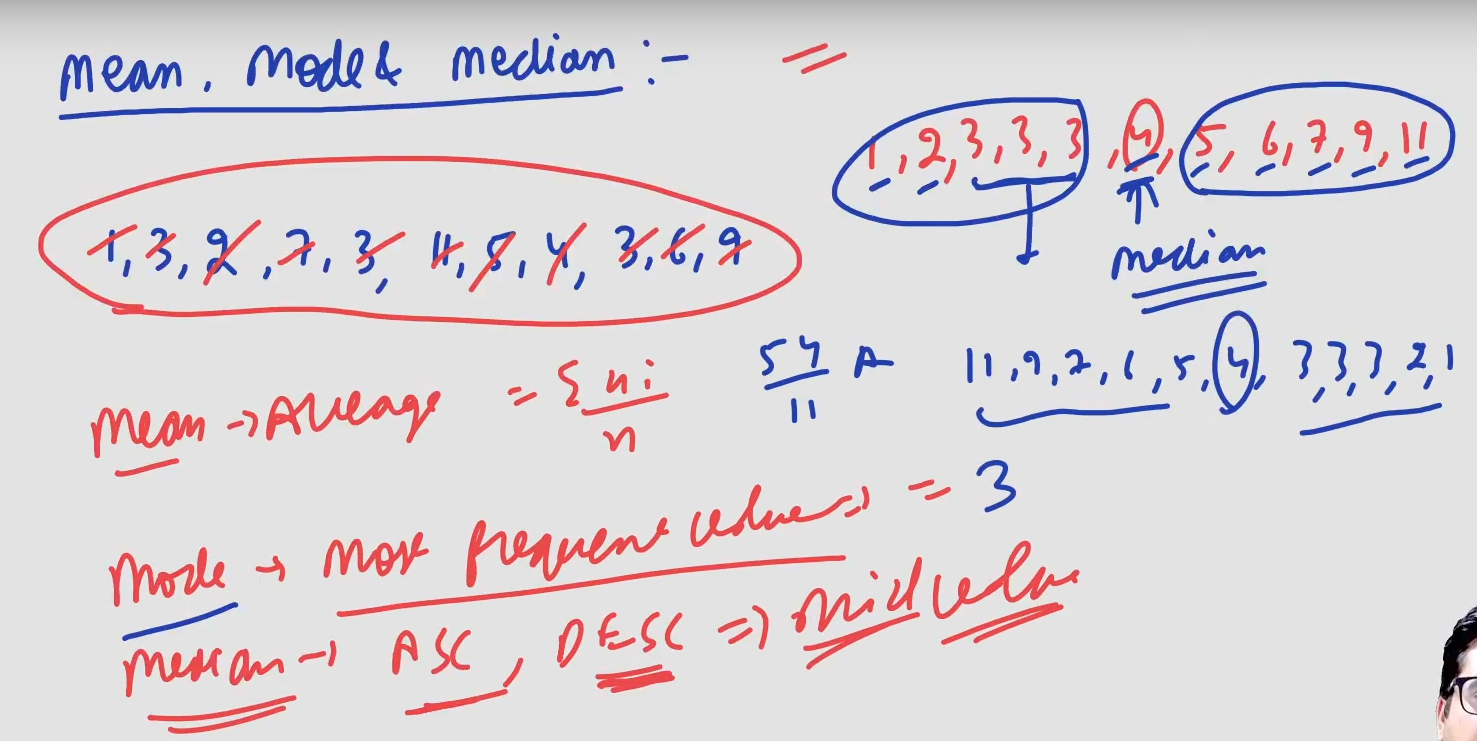 Mean, Mode & median :-
=
1, 2, 3, 3, 3, 4, 5, 6, 7, 9, 11
median
1, 3, 2, 7, 3, 11, 5, 4, 3, 6, 9
Mean → Average = Σ xi / n
54 / 11
A
11, 9, 7, 6, 5, 4, 3, 3, 3, 2, 1
Mode → Most frequent value => = 3
Median → ASC, DESC => Mid value